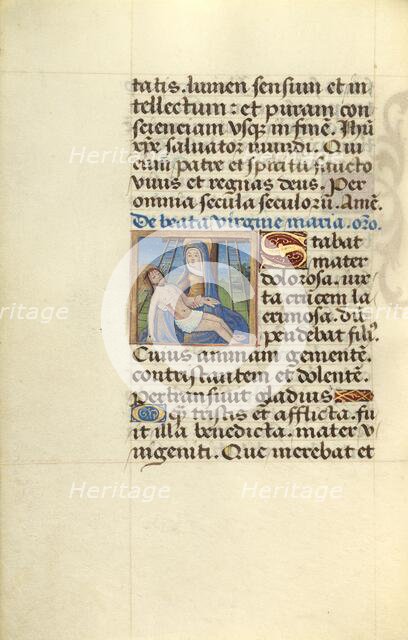 tatis. lumen sensum et in
tellectum: et puram con
scienciam vsq̃ in finē. Jhũ
xp̃e saluator mundi. Qui
cum patre et spiritu sancto
viuis et regnas deus. Per
omnia secula seculorũ. Amē.
De beata virgine maria. oro.
Stabat
mater
dolorosa. iux
ta crucem la
crimosa. dũ
pendebat filiꝰ
Cuius animam gementē.
contristantem et dolentē.
pertransiuit gladius
O q̃ tristis et afflicta. fu
it illa benedicta. mater v
nigeniti. Que merebat et
Heritage
Heritage
Heritage
Heritage
Heritage
Heritage
Heritage